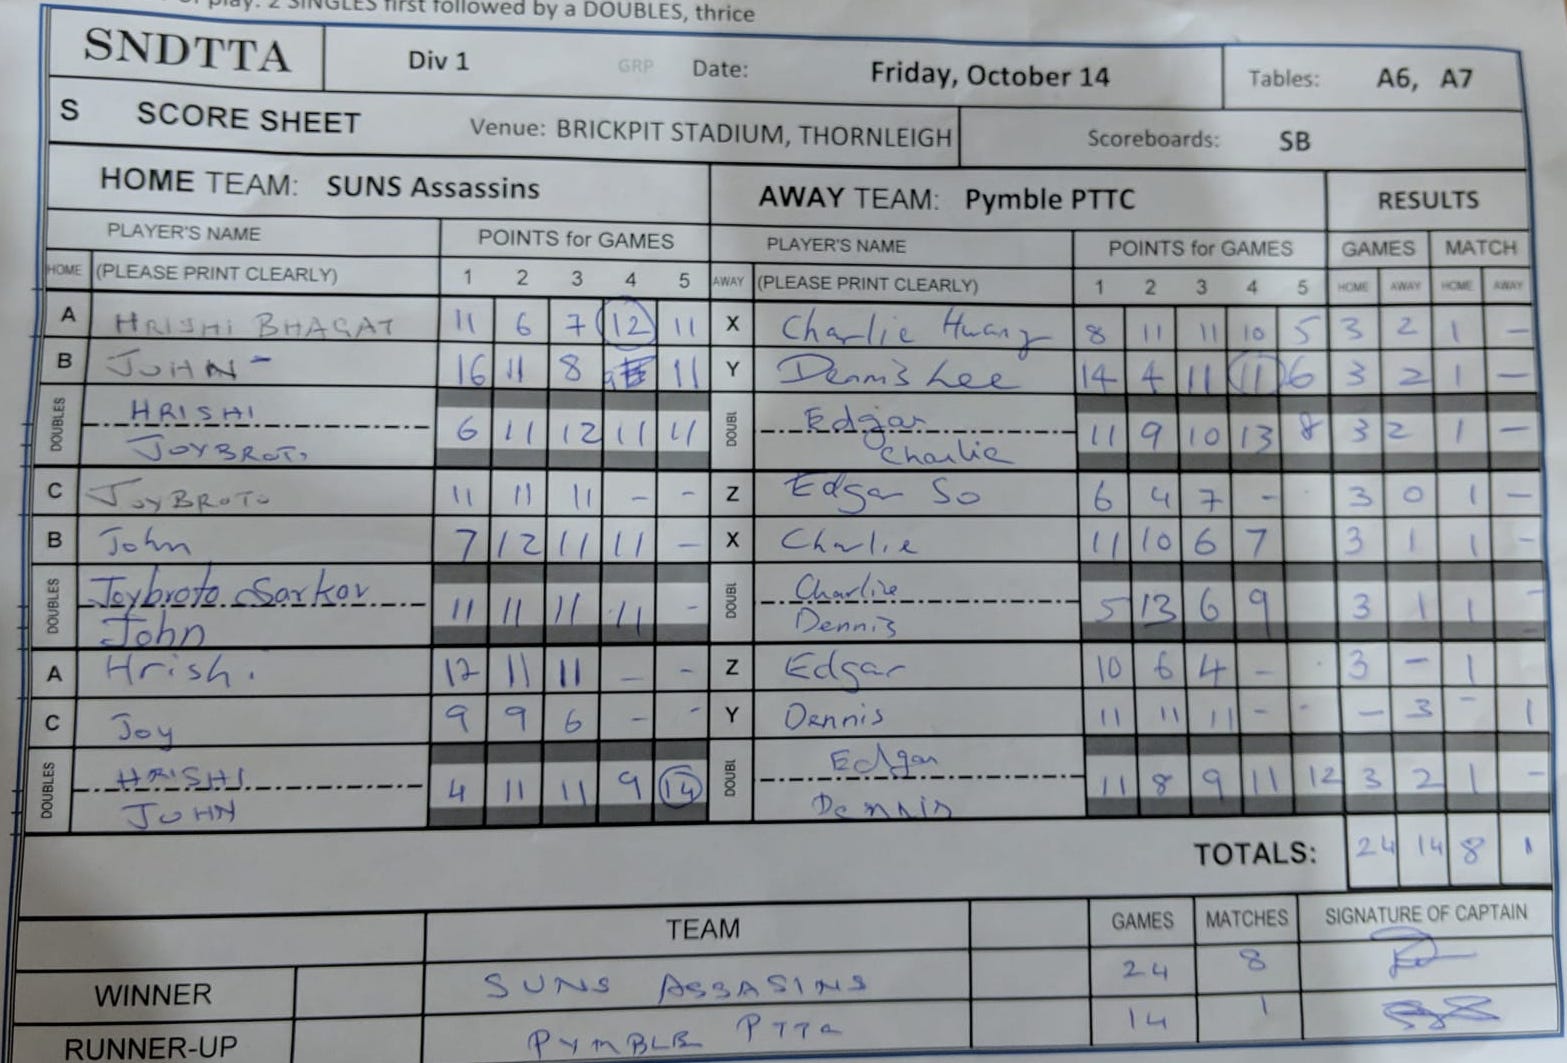 play: 2 SINGLES first followed by a DOUBLES, thrice
SNDTTA Div 1 GRP Date: Friday, October 14 Tables: A6, A7
S SCORE SHEET Venue: BRICKPIT STADIUM, THORNLEIGH Scoreboards: SB
HOME TEAM: SUNS Assassins AWAY TEAM: Pymble PTTC RESULTS
PLAYER'S NAME POINTS for GAMES PLAYER'S NAME POINTS for GAMES GAMES MATCH
HOME (PLEASE PRINT CLEARLY) 1 2 3 4 5 AWAY (PLEASE PRINT CLEARLY) 1 2 3 4 5 HOME AWAY HOME AWAY
A HRISHI BHAGAT 11 6 7 12 11 X Charlie Hwang 8 11 11 10 5 3 2 1 -
B JOHN - 16 11 8 9 11 Y Dennis Lee 14 4 11 11 6 3 2 1 -
DOUBLES HRISHI DOUBL Edgar
JOYBROTO 6 11 12 11 11 Charlie 11 9 10 13 8 3 2 1 -
C JOYBROTO 11 11 11 - - Z Edgar So 6 4 7 - 3 0 1 -
B John 7 12 11 11 - X Charlie 11 10 6 7 3 1 1 -
DOUBLES Joybroto Sarkar DOUBL Charlie
John 11 11 11 11 - Dennis 5 13 6 9 3 1 1 -
A Hrishi 12 11 11 - - Z Edgar 10 6 4 - 3 - 1
C Joy 9 9 6 - - Y Dennis 11 11 11 - - - 3 - 1
DOUBLES HRISHI DOUBL Edgar
JOHN 4 11 11 9 14 Dennis 11 8 9 11 12 3 2 1 -
TOTALS: 24 14 8 1
TEAM GAMES MATCHES SIGNATURE OF CAPTAIN
WINNER SUNS ASSASINS 24 8
RUNNER-UP PYMBLE PTTC 14 1